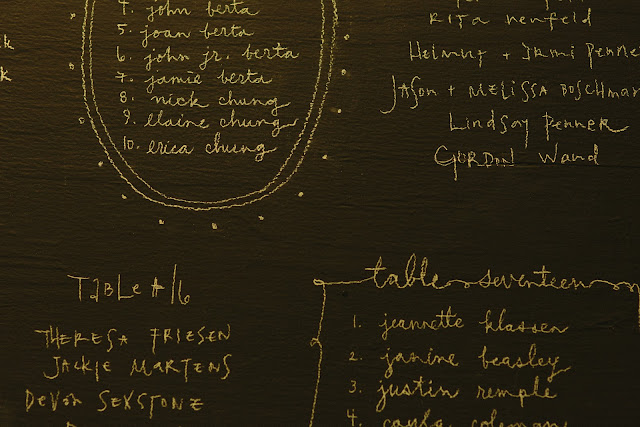 4. john berta
5. joan berta
6. john jr. berta
7. jamie berta
8. nick chung
9. elaine chung
10. erica chung
Rita Neufeld
Helmut + Irmi Penne
Jason + Melissa Boschman
Lindsay Penner
Gordon Wand
Table # 16
Theresa Friesen
Jackie Martens
Devon Sexstone
table seventeen
1. jeannette klassen
2. janine beasley
3. justin remple
4. cayla coleman